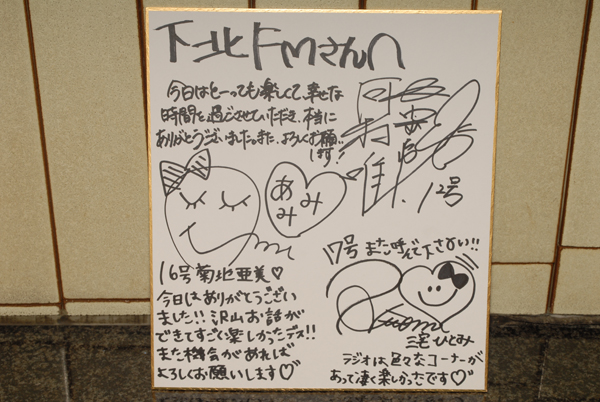 下北FMさんへ
今日はとーっても楽しくて、幸せな
時間を過ごさせていただき、本当に
ありがとうございました。また、よろしくお願い
します!
12号
あみみ
16号 菊地亜美♡
今日はありがとうござい
ました!! 沢山お話が
できてすごく楽しかったデス!!
また機会があれば
よろしくお願いします♡
17号 また呼んで下さぁい!!
三宅ひとみ
ラジオは、色々なコーナーが
あって凄く楽しかったです♡